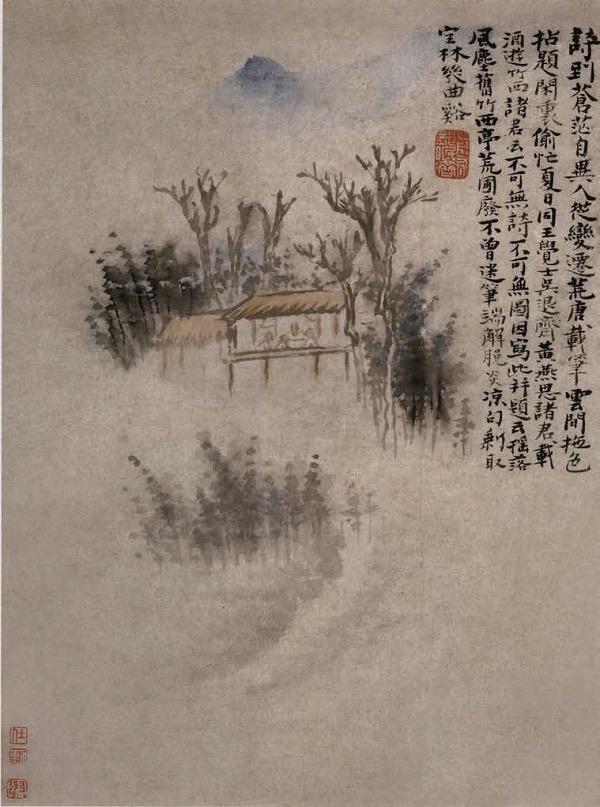 詩到蒼茫自異人變遷荒唐載筆雲間拖色
拈題閑裏偷忙夏日同王覺士吳退齋黃燕思諸君載
酒遊竹西諸君云不可無詩不可無圖因寫此并題云搖落
風塵舊竹西亭荒圃廢不曾迷筆端解脫炎凉句剩取
空林幾曲谿